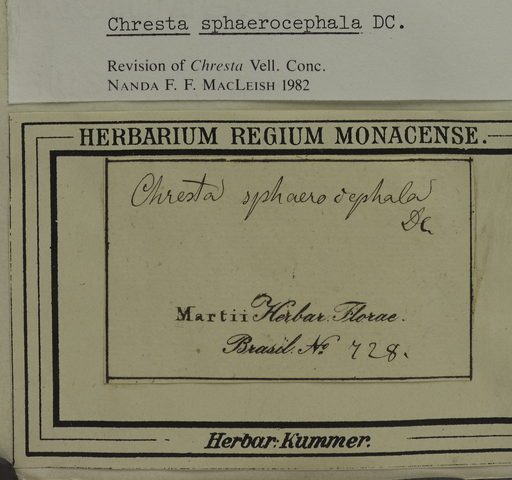 Chresta sphaerocephala DC.
Revision of Chresta Vell. Conc.
NANDA F. F. MACLEISH 1982
HERBARIUM REGIUM MONACENSE.
Chresta sphaerocephala
DC
Martii Herbar. Florae.
Brasil: No. 728.
Herbar: Kummer.